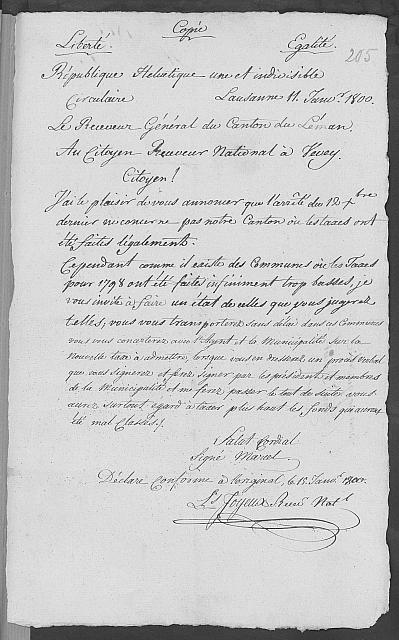 Copie
Liberté. Egalité.
205
République Helvetique une et indivisible
Circulaire Lausanne 11. Janvr. 1800.
Le Receveur Général du Canton du Léman.
Au Citoyen Receveur National à Vevey.
Citoyen!
J'ai le plaisir de vous annoncer que l'arrêté du 12 Xbre
dernier ne concerne pas notre Canton où les taxes ont
été faites légalement.
Cependant comme il existe des Communes où les Taxes
pour 1798 ont été faites infiniment trop basses, je
vous invite à faire un état de celles que vous jugerez
telles; vous vous transporterez sans délai dans ces Communes
vous vous concerterez avec l'Agent et la Municipalité sur la
Nouvelle taxe à admettre, lorsque vous en dresserez un procès verbal
que vous signerez et ferez signer par les président et membres
de la Municipalité et me ferez passer le tout de suite, vous
aurez surtout egard à taxer plus haut les fonds qui auront
été mal Classés!
Salut Cordial
Signé Marcel
Déclare Conforme à l'original, le 15. Janvr. 1800.
Ls Joyeux Recr. Natl